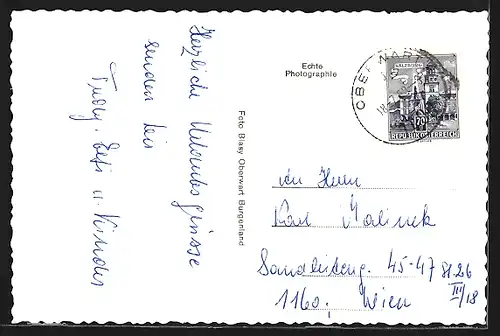 Herzliche Urlaubsgrüsse
senden
Trudy, Sefi u. Kinder
Foto Blasy Oberwart Burgenland
Echte
Photographie
OBERWART
SALZBURG
REPUBLIK ÖSTERREICH
An Herrn
Karl Malinek
Sandleiteng. 45-47 St. 26
III/18
1160. Wien